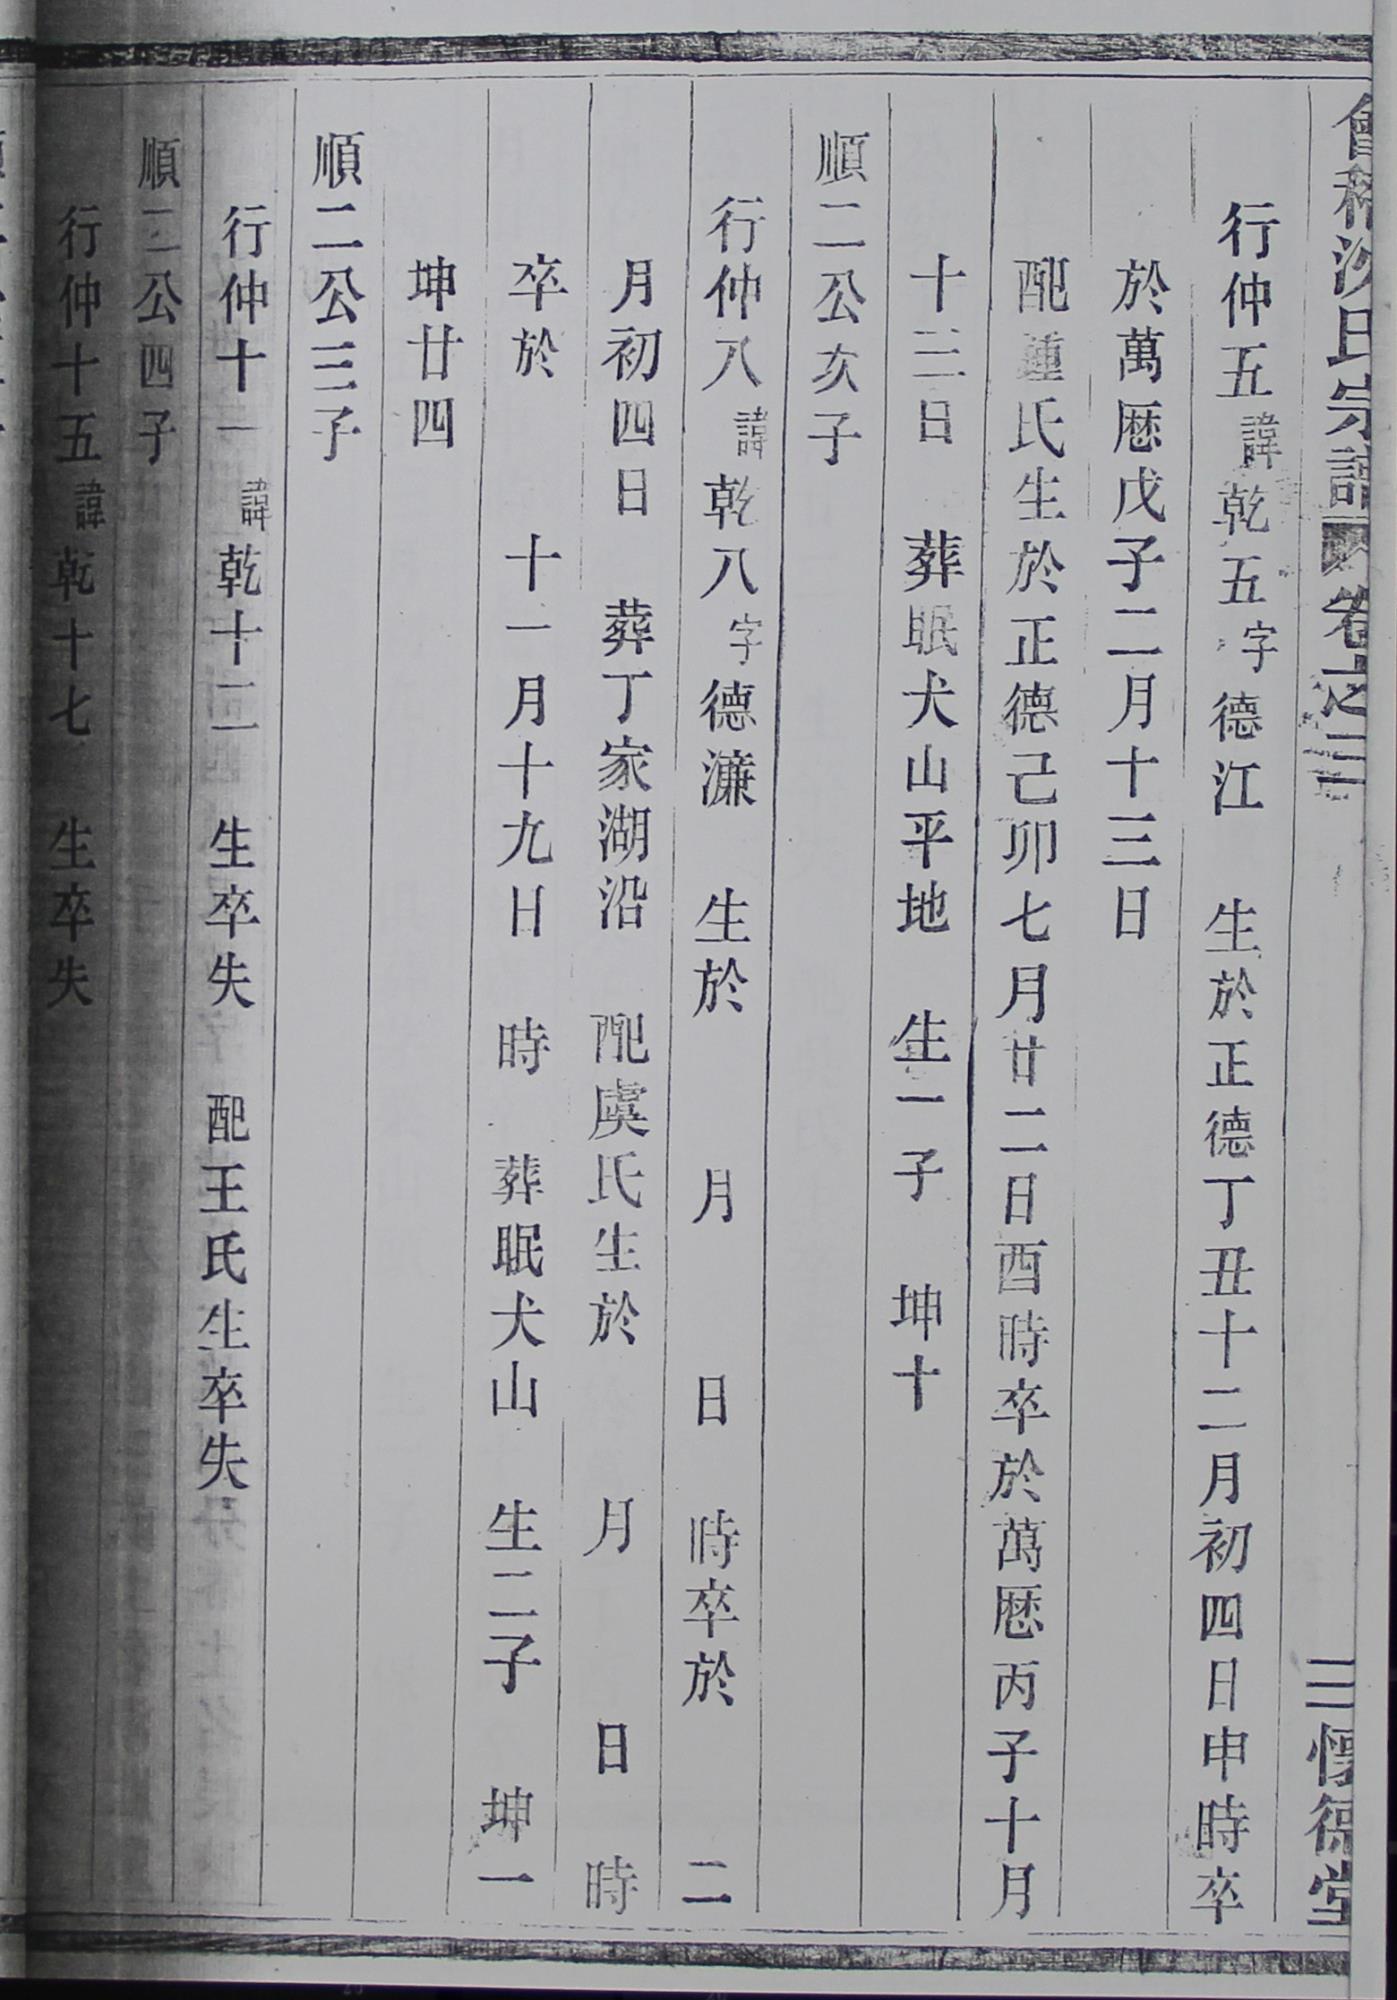 會稽沈氏宗譜 卷之二 三 懷德堂
行仲五諱乾五字德江 生於正德丁丑十二月初四日申時卒
於萬厯戊子二月十三日
配鍾氏生於正德己卯七月廿二日酉時卒於萬厯丙子十月
十三日 葬眠犬山平地 生一子 坤十
順二公次子
行仲八諱乾八字德濂 生於 月 日 時卒於 二
月初四日 葬丁家湖沿 配虞氏生於 月 日 時
卒於 十一月十九日 時 葬眠犬山 生二子 坤一
坤廿四
順二公三子
行仲十一諱乾十二 生卒失 配王氏生卒失
順二公四子
行仲十五諱乾十七 生卒失